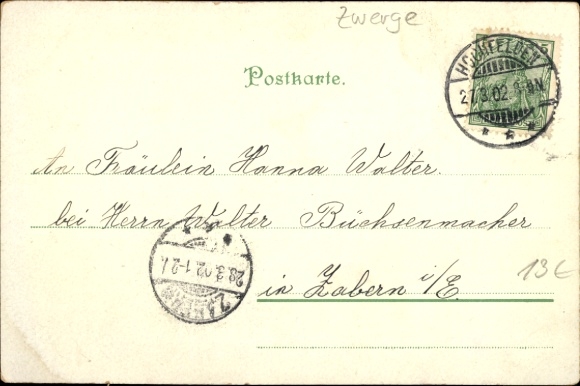 Zwerge
Postkarte.
HOCHFELDEN
27.3.02.
An Fräulein Hanna Walter.
bei Herrn Walter Büchsenmacher
in Zabern i/E.
13€
ZABERN
28.3.02.1-2